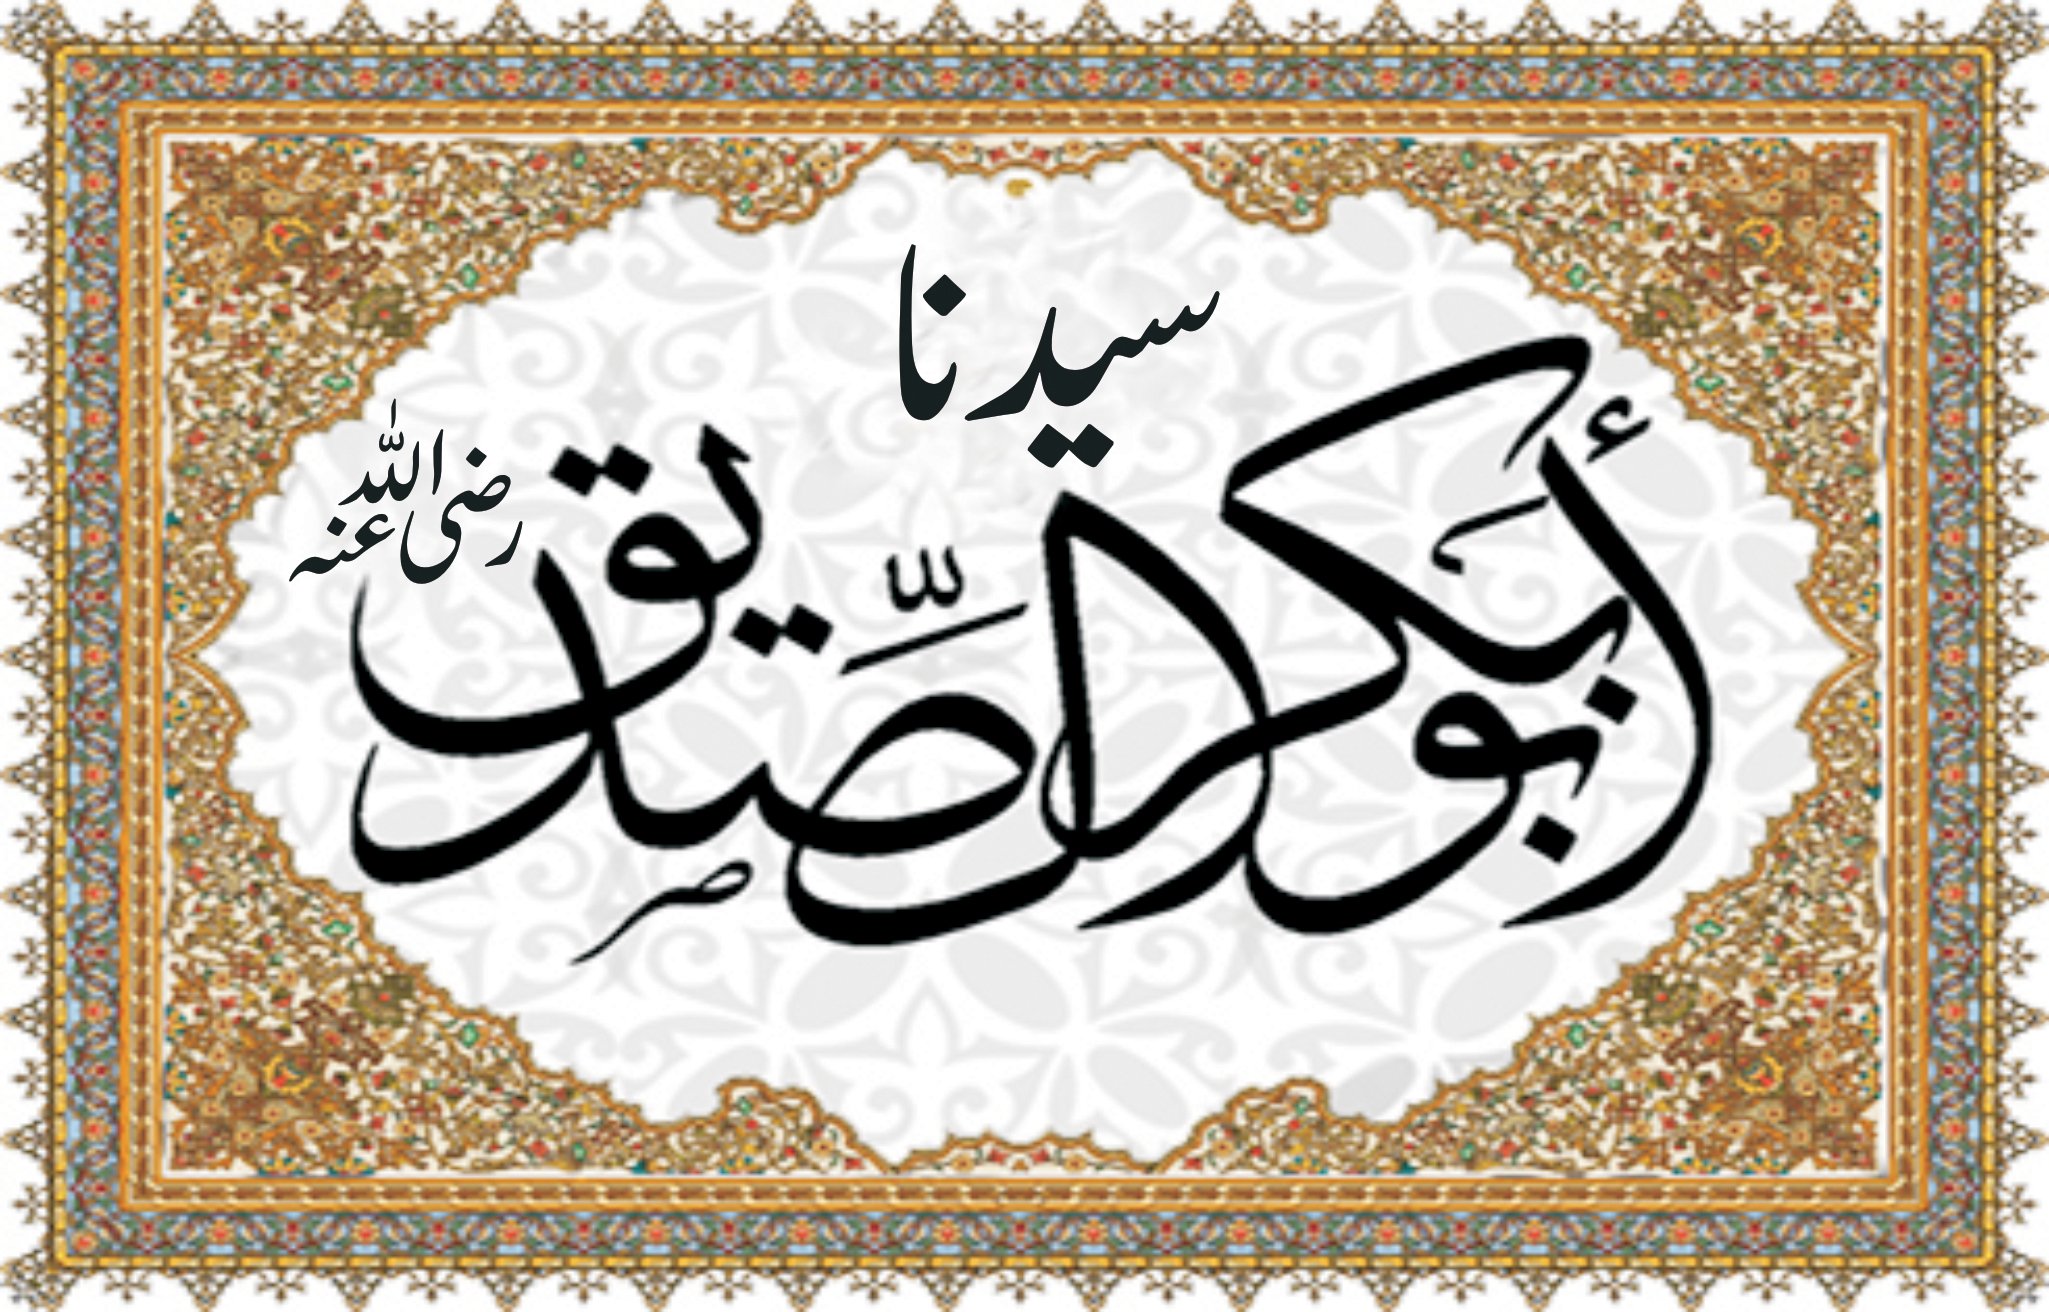 سيدنا
أبو بكر الصديق
رضی اللہ عنہ